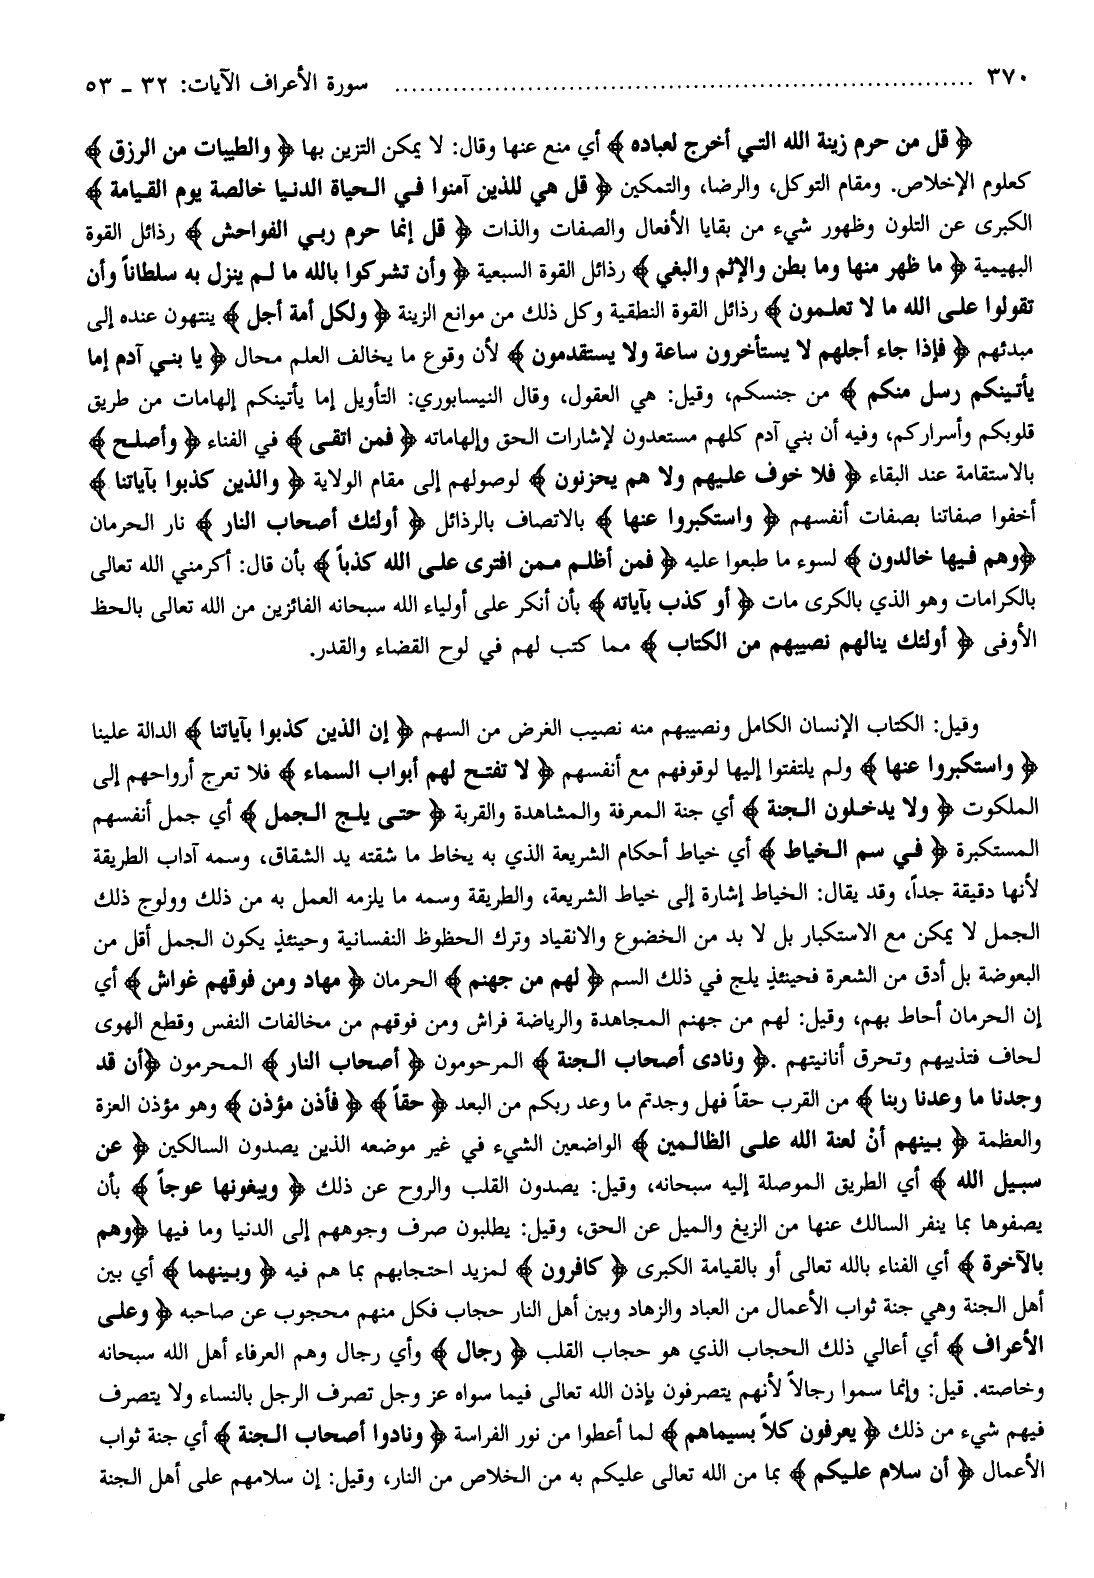 ٣٧٠ ........................................................................ سورة الأعراف الآيات: ٣٢ ـ ٥٣
﴿ قل من حرم زينة الله التي أخرج لعباده ﴾ أي منع عنها وقال: لا يمكن التزين بها ﴿ والطيبات من الرزق ﴾
كعلوم الإخلاص. ومقام التوكل، والرضا، والتمكين ﴿ قل هي للذين آمنوا في الحياة الدنيا خالصة يوم القيامة ﴾
الكبرى عن التلون وظهور شيء من بقايا الأفعال والصفات والذات ﴿ قل إنما حرم ربي الفواحش ﴾ رذائل القوة
البهيمية ﴿ ما ظهر منها وما بطن والإثم والبغي ﴾ رذائل القوة السبعية ﴿ وأن تشركوا بالله ما لم ينزل به سلطاناً وأن
تقولوا على الله ما لا تعلمون ﴾ رذائل القوة النطقية وكل ذلك من موانع الزينة ﴿ ولكل أمة أجل ﴾ ينتهون عنده إلى
مبدئهم ﴿ فإذا جاء أجلهم لا يستأخرون ساعة ولا يستقدمون ﴾ لأن وقوع ما يخالف العلم محال ﴿ يا بني آدم إما
يأتينكم رسل منكم ﴾ من جنسكم، وقيل: هي العقول، وقال النيسابوري: التأويل إما يأتينكم إلهامات من طريق
قلوبكم وأسراركم، وفيه أن بني آدم كلهم مستعدون لإشارات الحق وإلهاماته ﴿ فمن اتقى ﴾ في الفناء ﴿ وأصلح ﴾
بالاستقامة عند البقاء ﴿ فلا خوف عليهم ولا هم يحزنون ﴾ لوصولهم إلى مقام الولاية ﴿ والذين كذبوا بآياتنا ﴾
أخفوا صفاتنا بصفات أنفسهم ﴿ واستكبروا عنها ﴾ بالاتصاف بالرذائل ﴿ أولئك أصحاب النار ﴾ نار الحرمان
﴿وهم فيها خالدون ﴾ لسوء ما طبعوا عليه ﴿ فمن أظلم ممن افترى على الله كذباً ﴾ بأن قال: أكرمني الله تعالى
بالكرامات وهو الذي بالكرى مات ﴿ أو كذب بآياته ﴾ بأن أنكر على أولياء الله سبحانه الفائزين من الله تعالى بالحظ
الأوفى ﴿ أولئك ينالهم نصيبهم من الكتاب ﴾ مما كتب لهم في لوح القضاء والقدر.
وقيل: الكتاب الإنسان الكامل ونصيبهم منه نصيب الغرض من السهم ﴿ إن الذين كذبوا بآياتنا ﴾ الدالة علينا
﴿ واستكبروا عنها ﴾ ولم يلتفتوا إليها لوقوفهم مع أنفسهم ﴿ لا تفتح لهم أبواب السماء ﴾ فلا تعرج أرواحهم إلى
الملكوت ﴿ ولا يدخلون الجنة ﴾ أي جنة المعرفة والمشاهدة والقربة ﴿ حتى يلج الجمل ﴾ أي جمل أنفسهم
المستكبرة ﴿ في سم الخياط ﴾ أي خياط أحكام الشريعة الذي به يخاط ما شقته يد الشقاق، وسمه آداب الطريقة
لأنها دقيقة جداً، وقد يقال: الخياط إشارة إلى خياط الشريعة، والطريقة وسمه ما يلزمه العمل به من ذلك وولوج ذلك
الجمل لا يمكن مع الاستكبار بل لا بد من الخضوع والانقياد وترك الحظوظ النفسانية وحينئذٍ يكون الجمل أقل من
البعوضة بل أدق من الشعرة فحينئذٍ يلج في ذلك السم ﴿ لهم من جهنم ﴾ الحرمان ﴿ مهاد ومن فوقهم غواش ﴾ أي
إن الحرمان أحاط بهم، وقيل: لهم من جهنم المجاهدة والرياضة فراش ومن فوقهم من مخالفات النفس وقطع الهوى
لحاف فتذيبهم وتحرق أنانيتهم .﴿ ونادى أصحاب الجنة ﴾ المرحومون ﴿ أصحاب النار ﴾ المحرمون ﴿أن قد
وجدنا ما وعدنا ربنا ﴾ من القرب حقاً فهل وجدتم ما وعد ربكم من البعد ﴿ حقاً ﴾ ﴿ فأذن مؤذن ﴾ وهو مؤذن العزة
والعظمة ﴿ بينهم أنْ لعنة الله على الظالمين ﴾ الواضعين الشيء في غير موضعه الذين يصدون السالكين ﴿ عن
سبيل الله ﴾ أي الطريق الموصلة إليه سبحانه، وقيل: يصدون القلب والروح عن ذلك ﴿ ويبغونها عوجاً ﴾ بأن
يصفوها بما ينفر السالك عنها من الزيغ والميل عن الحق، وقيل: يطلبون صرف وجوههم إلى الدنيا وما فيها ﴿وهم
بالآخرة ﴾ أي الفناء بالله تعالى أو بالقيامة الكبرى ﴿ كافرون ﴾ لمزيد احتجابهم بما هم فيه ﴿ وبينهما ﴾ أي بين
أهل الجنة وهي جنة ثواب الأعمال من العباد والزهاد وبين أهل النار حجاب فكل منهم محجوب عن صاحبه ﴿ وعلى
الأعراف ﴾ أي أعالي ذلك الحجاب الذي هو حجاب القلب ﴿ رجال ﴾ وأي رجال وهم العرفاء أهل الله سبحانه
وخاصته. قيل: وإنما سموا رجالاً لأنهم يتصرفون بإذن الله تعالى فيما سواه عز وجل تصرف الرجل بالنساء ولا يتصرف
فيهم شيء من ذلك ﴿ يعرفون كلاً بسيماهم ﴾ لما أعطوا من نور الفراسة ﴿ ونادوا أصحاب الجنة ﴾ أي جنة ثواب
الأعمال ﴿ أن سلام عليكم ﴾ بما من الله تعالى عليكم به من الخلاص من النار، وقيل: إن سلامهم على أهل الجنة